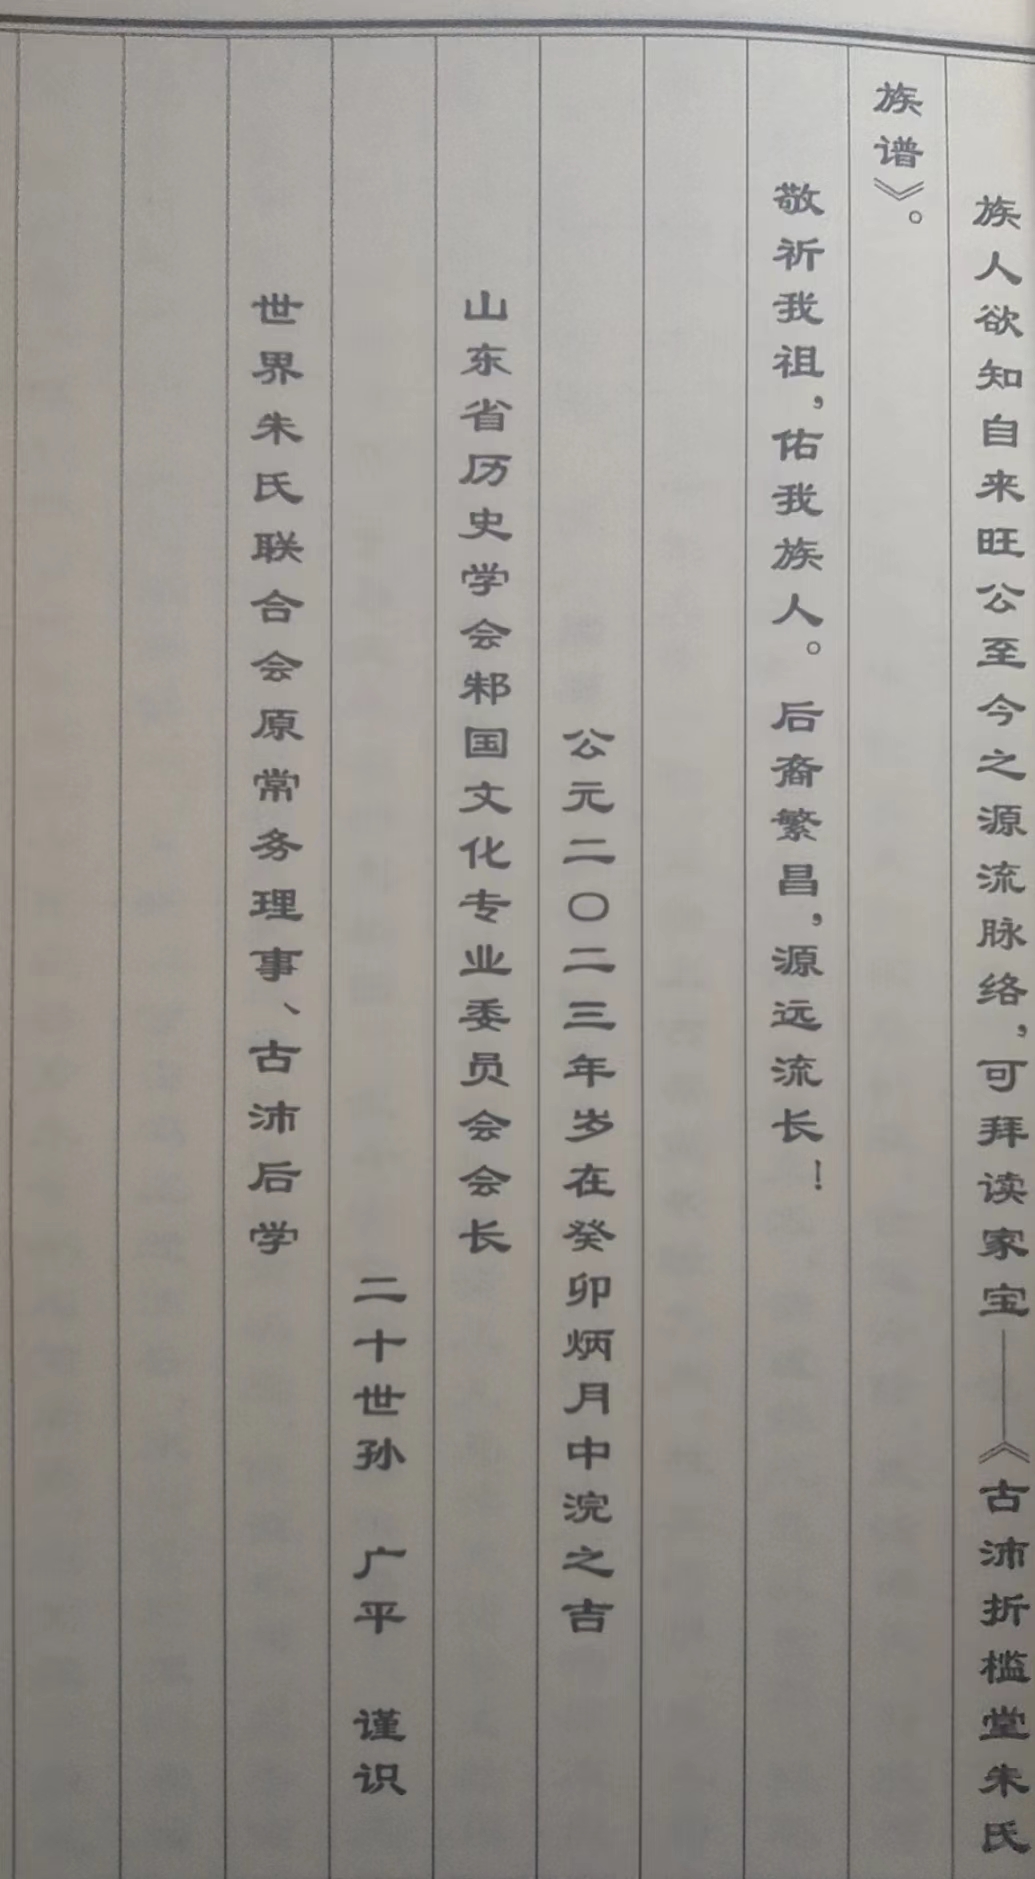 族人欲知自来旺公至今之源流脉络，可拜读家宝——《古沛折槛堂朱氏
族谱》。
敬祈我祖，佑我族人。后裔繁昌，源远流长！
公元二〇二三年岁在癸卯炳月中浣之吉
山东省历史学会邾国文化专业委员会会长
二十世孙 广平 谨识
世界朱氏联合会原常务理事、古沛后学